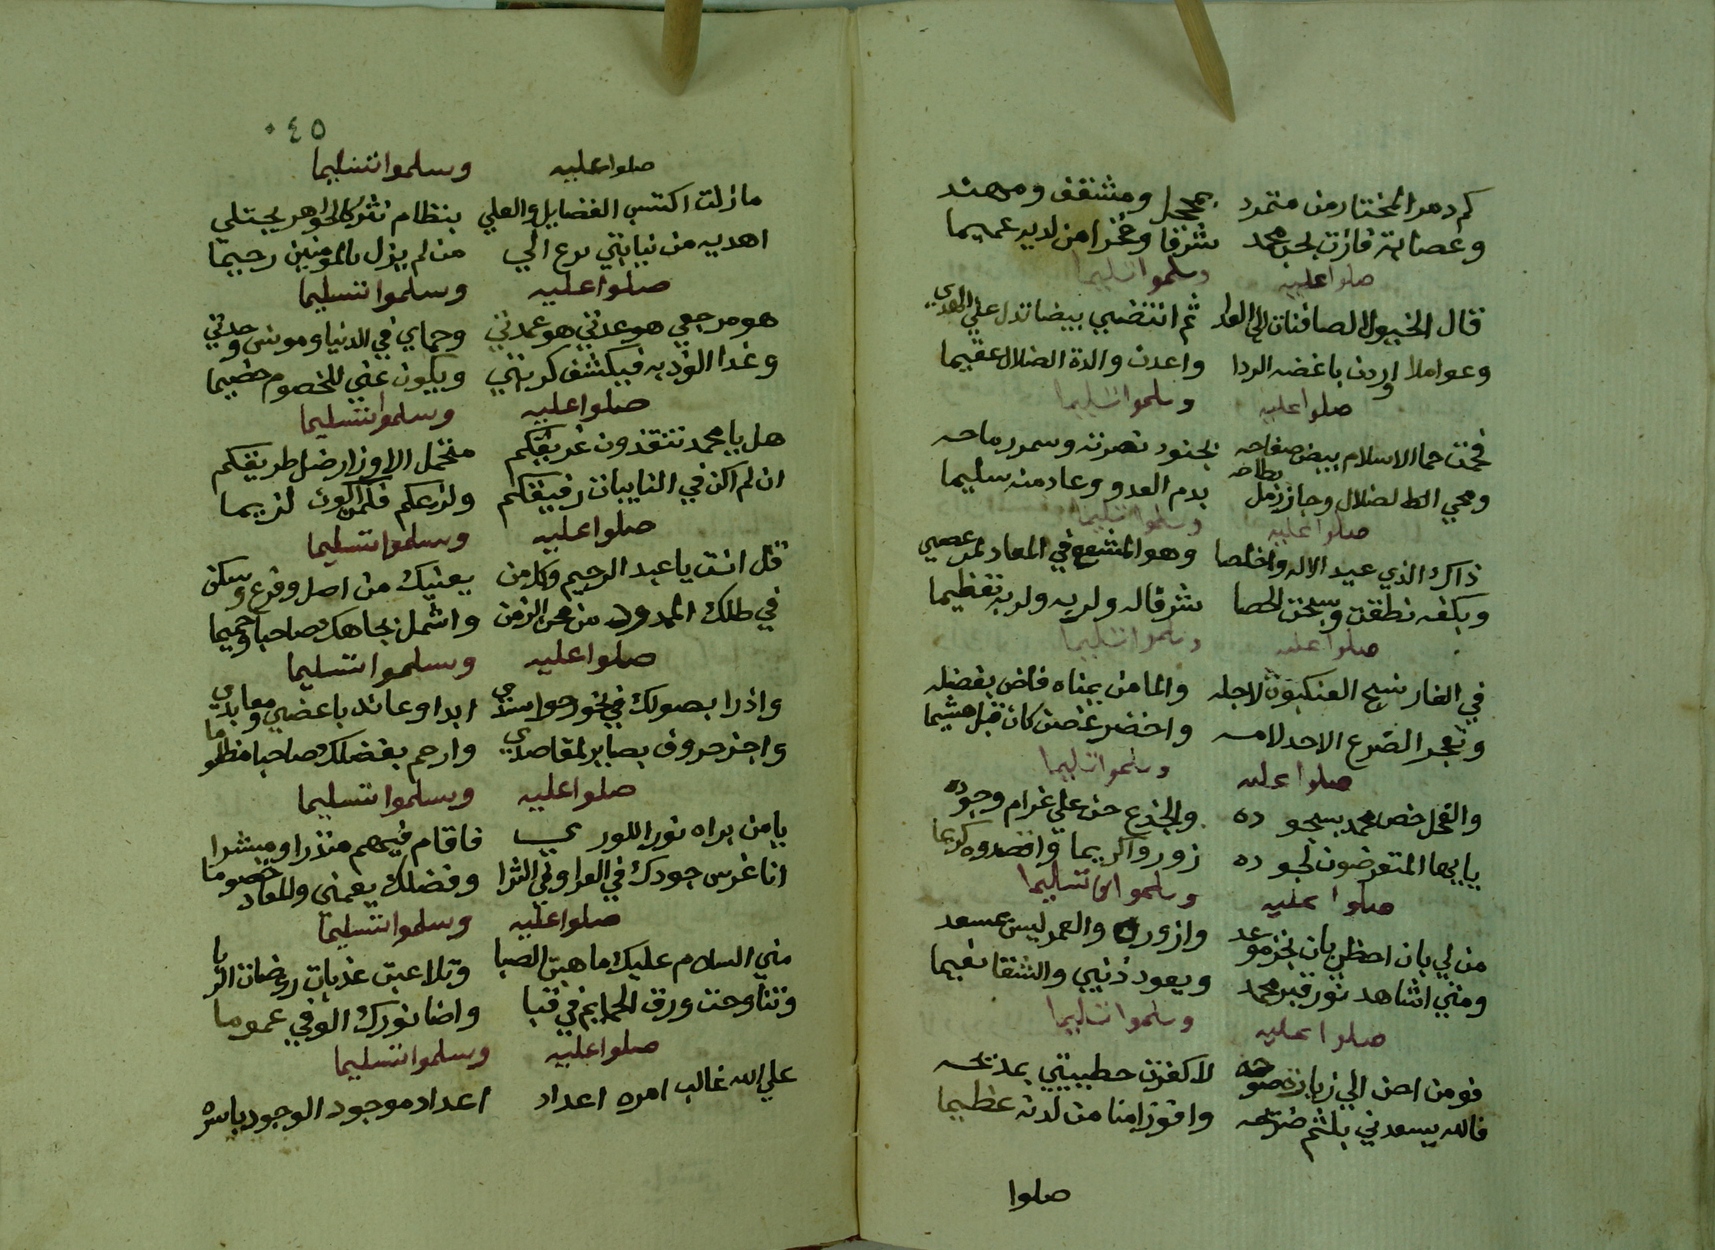 كم دمر المختار من متمرد بمحجل ومثقف ومهند
وعصابة فازت بحب محمد شرفا وفخرا من لديه عميما
صلوا عليه وسلموا تسليما
قال الخيول الصافنات الى العدا ثم انتضي بيضا تدل علي الهدي
وعواملا اوردن باغضه الردا واعدن والدة الضلال عقيما
صلوا عليه وسلموا تسليما
فحمت حما الاسلام بيض صفاحه بجنود نصرته وسمر رماحه
ومحي الضلال وجاز رمل بطاحه بدم العدو وعاد منه سليما
صلوا عليه وسلموا تسليما
ذاك الذي عبد الاله واخلصا وهو المشفع في المعاد لمن عصي
وبكفه نطقت وسبحت الحصا شرفا له ولربه تعظيما
صلوا عليه وسلموا تسليما
في الغار نسج العنكبوت لاجله والما من يمناه فاض بفضله
وتفجر الضرع الاجد لامسه واخضر غصن كان قبل هشيما
صلوا عليه وسلموا تسليما
والفحل خص محمد بسجوده والجذع حن علي غرام وجوده
يا ايها المتعرضون لجوده زوروا كريما واقصدوه كريما
صلوا عليه وسلموا تسليما
من لي بان احظي بان نجز موعد وازور والعمر ليس بمسعد
ومتي اشاهد نور قبر محمد ويعود ذنبي والشقا نعيما
صلوا عليه وسلموا تسليما
فو من احن الي زيارة لاكفرن خطيئتي بمدحه
فالله يسعدني بلثم ضريحه وافوز امنا من لدنه عظيما
صلوا
٤٥
صلوا عليه وسلموا تسليما
مازلت اكتسب الفضايل والعلي بنظام نثر كالجواهر يجتلي
اهديه من نيابتي برع الي من لم يزل بالمومنين رحيما
صلوا عليه وسلموا تسليما
هو مرجعي هو عدتي هو عمدتي وحماي في الدنيا ومونس وحدتي
وغدا الوذ به فيكشف كربتي ويكون عني للخصوم خصيما
صلوا عليه وسلموا تسليما
هل يا محمد تنقذون غريقكم متحمل الاوزار ضل طريقكم
ان لم اكن في النايبات رفيقكم ولزعكم فلمن اكون لزيما
صلوا عليه وسلموا تسليما
قل انت يا عبد الرحيم وكل من يعنيك من اصل وفرع وسكن
في ظلك الممدود من محن الزمن واشمل بجاهك صاحبا وحميما
صلوا عليه وسلموا تسليما
واذرا بصولك في نحور حواسدي ابدا وعاند باغضي ومعاندي
واجز حروف بصاير لمقاصدي وارحم بفضلك صاحبا مظلوما
صلوا عليه وسلموا تسليما
يا من براه نورا للوري فاقام فيهم منذرا ومبشرا
انا غرس جودك في العرا وفي الثرا وفضلك يعمني وللمعاد خصوما
صلوا عليه وسلموا تسليما
مني السلام عليك ما هبت الصبا وتلاعبت عذبات روضات الربا
وتناوحت ورق الحمايم في قبا واضا نورك الوفي عموما
صلوا عليه وسلموا تسليما
علي الله غالب امره اعداد اعداد موجود الوجود باسره